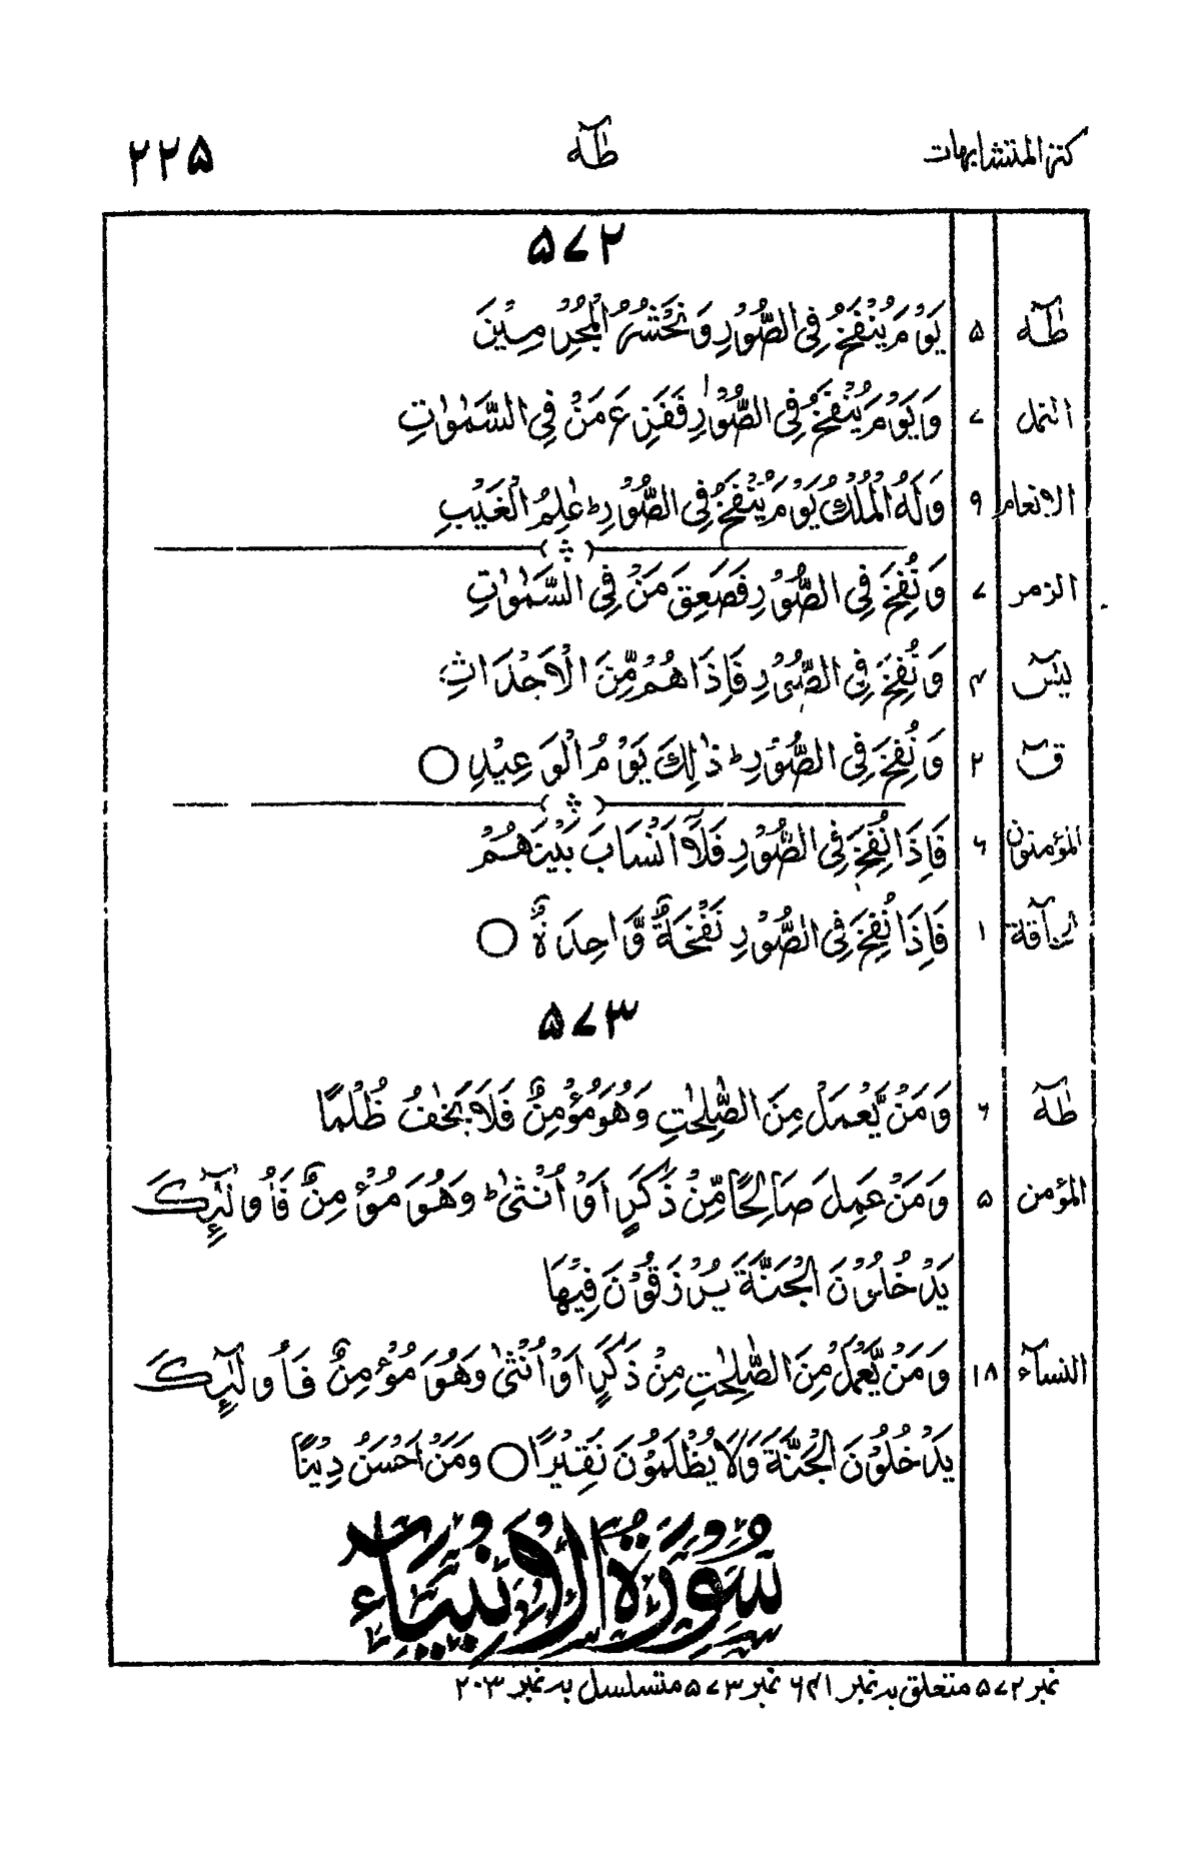 كنز المتشابهات طٰهٰ ۲۲۵
۵۷۲
طٰهٰ ۵ يَوْمَ يُنْفَخُ فِي الصُّوْرِ وَنَحْشُرُ الْمُجْرِمِيْنَ
النمل ۷ وَيَوْمَ يُنْفَخُ فِي الصُّوْرِ فَفَزِعَ مَنْ فِي السَّمٰوٰتِ
الانعام ۹ وَلَهُ الْمُلْكُ يَوْمَ يُنْفَخُ فِي الصُّوْرِ ؕ عٰلِمُ الْغَيْبِ
الزمر ۷ وَنُفِخَ فِي الصُّوْرِ فَصَعِقَ مَنْ فِي السَّمٰوٰتِ
يٰسٓ ۴ وَنُفِخَ فِي الصُّوْرِ فَاِذَا هُمْ مِّنَ الْاَجْدَاثِ
قٓ ۲ وَنُفِخَ فِي الصُّوْرِ ؕ ذٰلِكَ يَوْمُ الْوَعِيْدِ ○
المؤمنون ۶ فَاِذَا نُفِخَ فِي الصُّوْرِ فَلَآ اَنْسَابَ بَيْنَهُمْ
۱ فَاِذَا نُفِخَ فِي الصُّوْرِ نَفْخَةٌ وَّاحِدَةٌ ○
۵۷۳
طٰهٰ ۶ وَمَنْ يَّعْمَلْ مِنَ الصّٰلِحٰتِ وَهُوَ مُؤْمِنٌ فَلَا يَخٰفُ ظُلْمًا
المؤمن ۵ وَمَنْ عَمِلَ صَالِحًا مِّنْ ذَكَرٍ اَوْ اُنْثٰى ؕ وَهُوَ مُؤْمِنٌ فَاُولٰٓئِكَ
يَدْخُلُوْنَ الْجَنَّةَ يُرْزَقُوْنَ فِيْهَا
النسآء ۱۸ وَمَنْ يَّعْمَلْ مِنَ الصّٰلِحٰتِ مِنْ ذَكَرٍ اَوْ اُنْثٰى وَهُوَ مُؤْمِنٌ فَاُولٰٓئِكَ
يَدْخُلُوْنَ الْجَنَّةَ وَلَا يُظْلَمُوْنَ نَقِيْرًا ○ وَمَنْ اَحْسَنُ دِيْنًا
سُوْرَةُ الْاَنْبِيَآءِ
نمبر ۵۷۲ متعلق بہ نمبر ۶۴۱ نمبر ۵۷۳ متسلسل بہ نمبر ۲۰۳